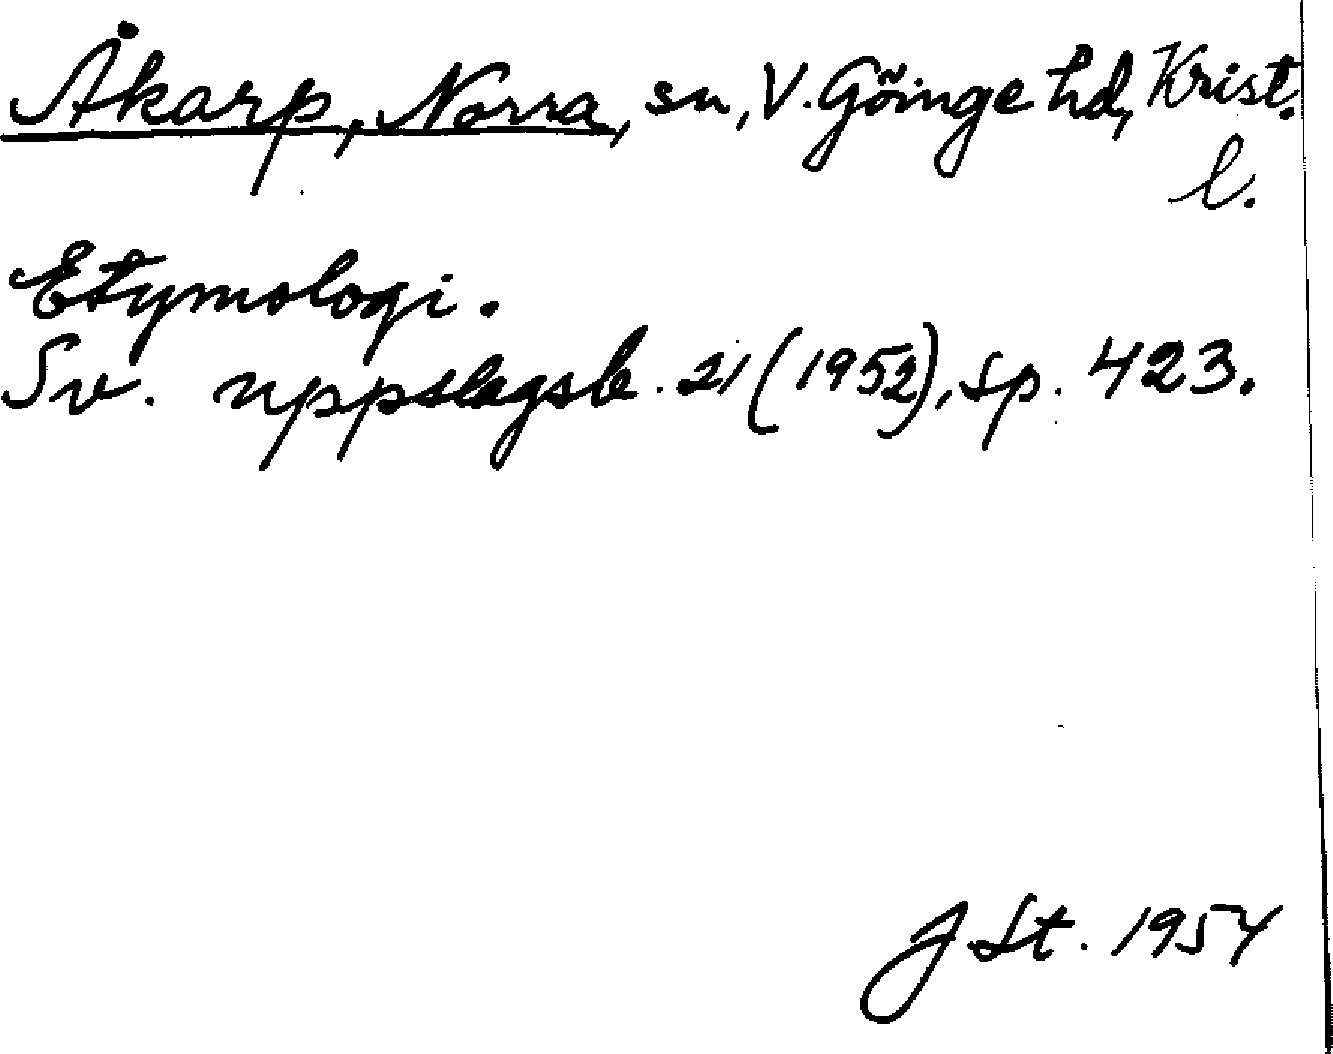 Åkarp, Norra, sn, V. Göinge hd, Krist.
l.
Etymologi.
Sv. uppslagsb. 21 (1952), sp. 423.
J. St. 1954